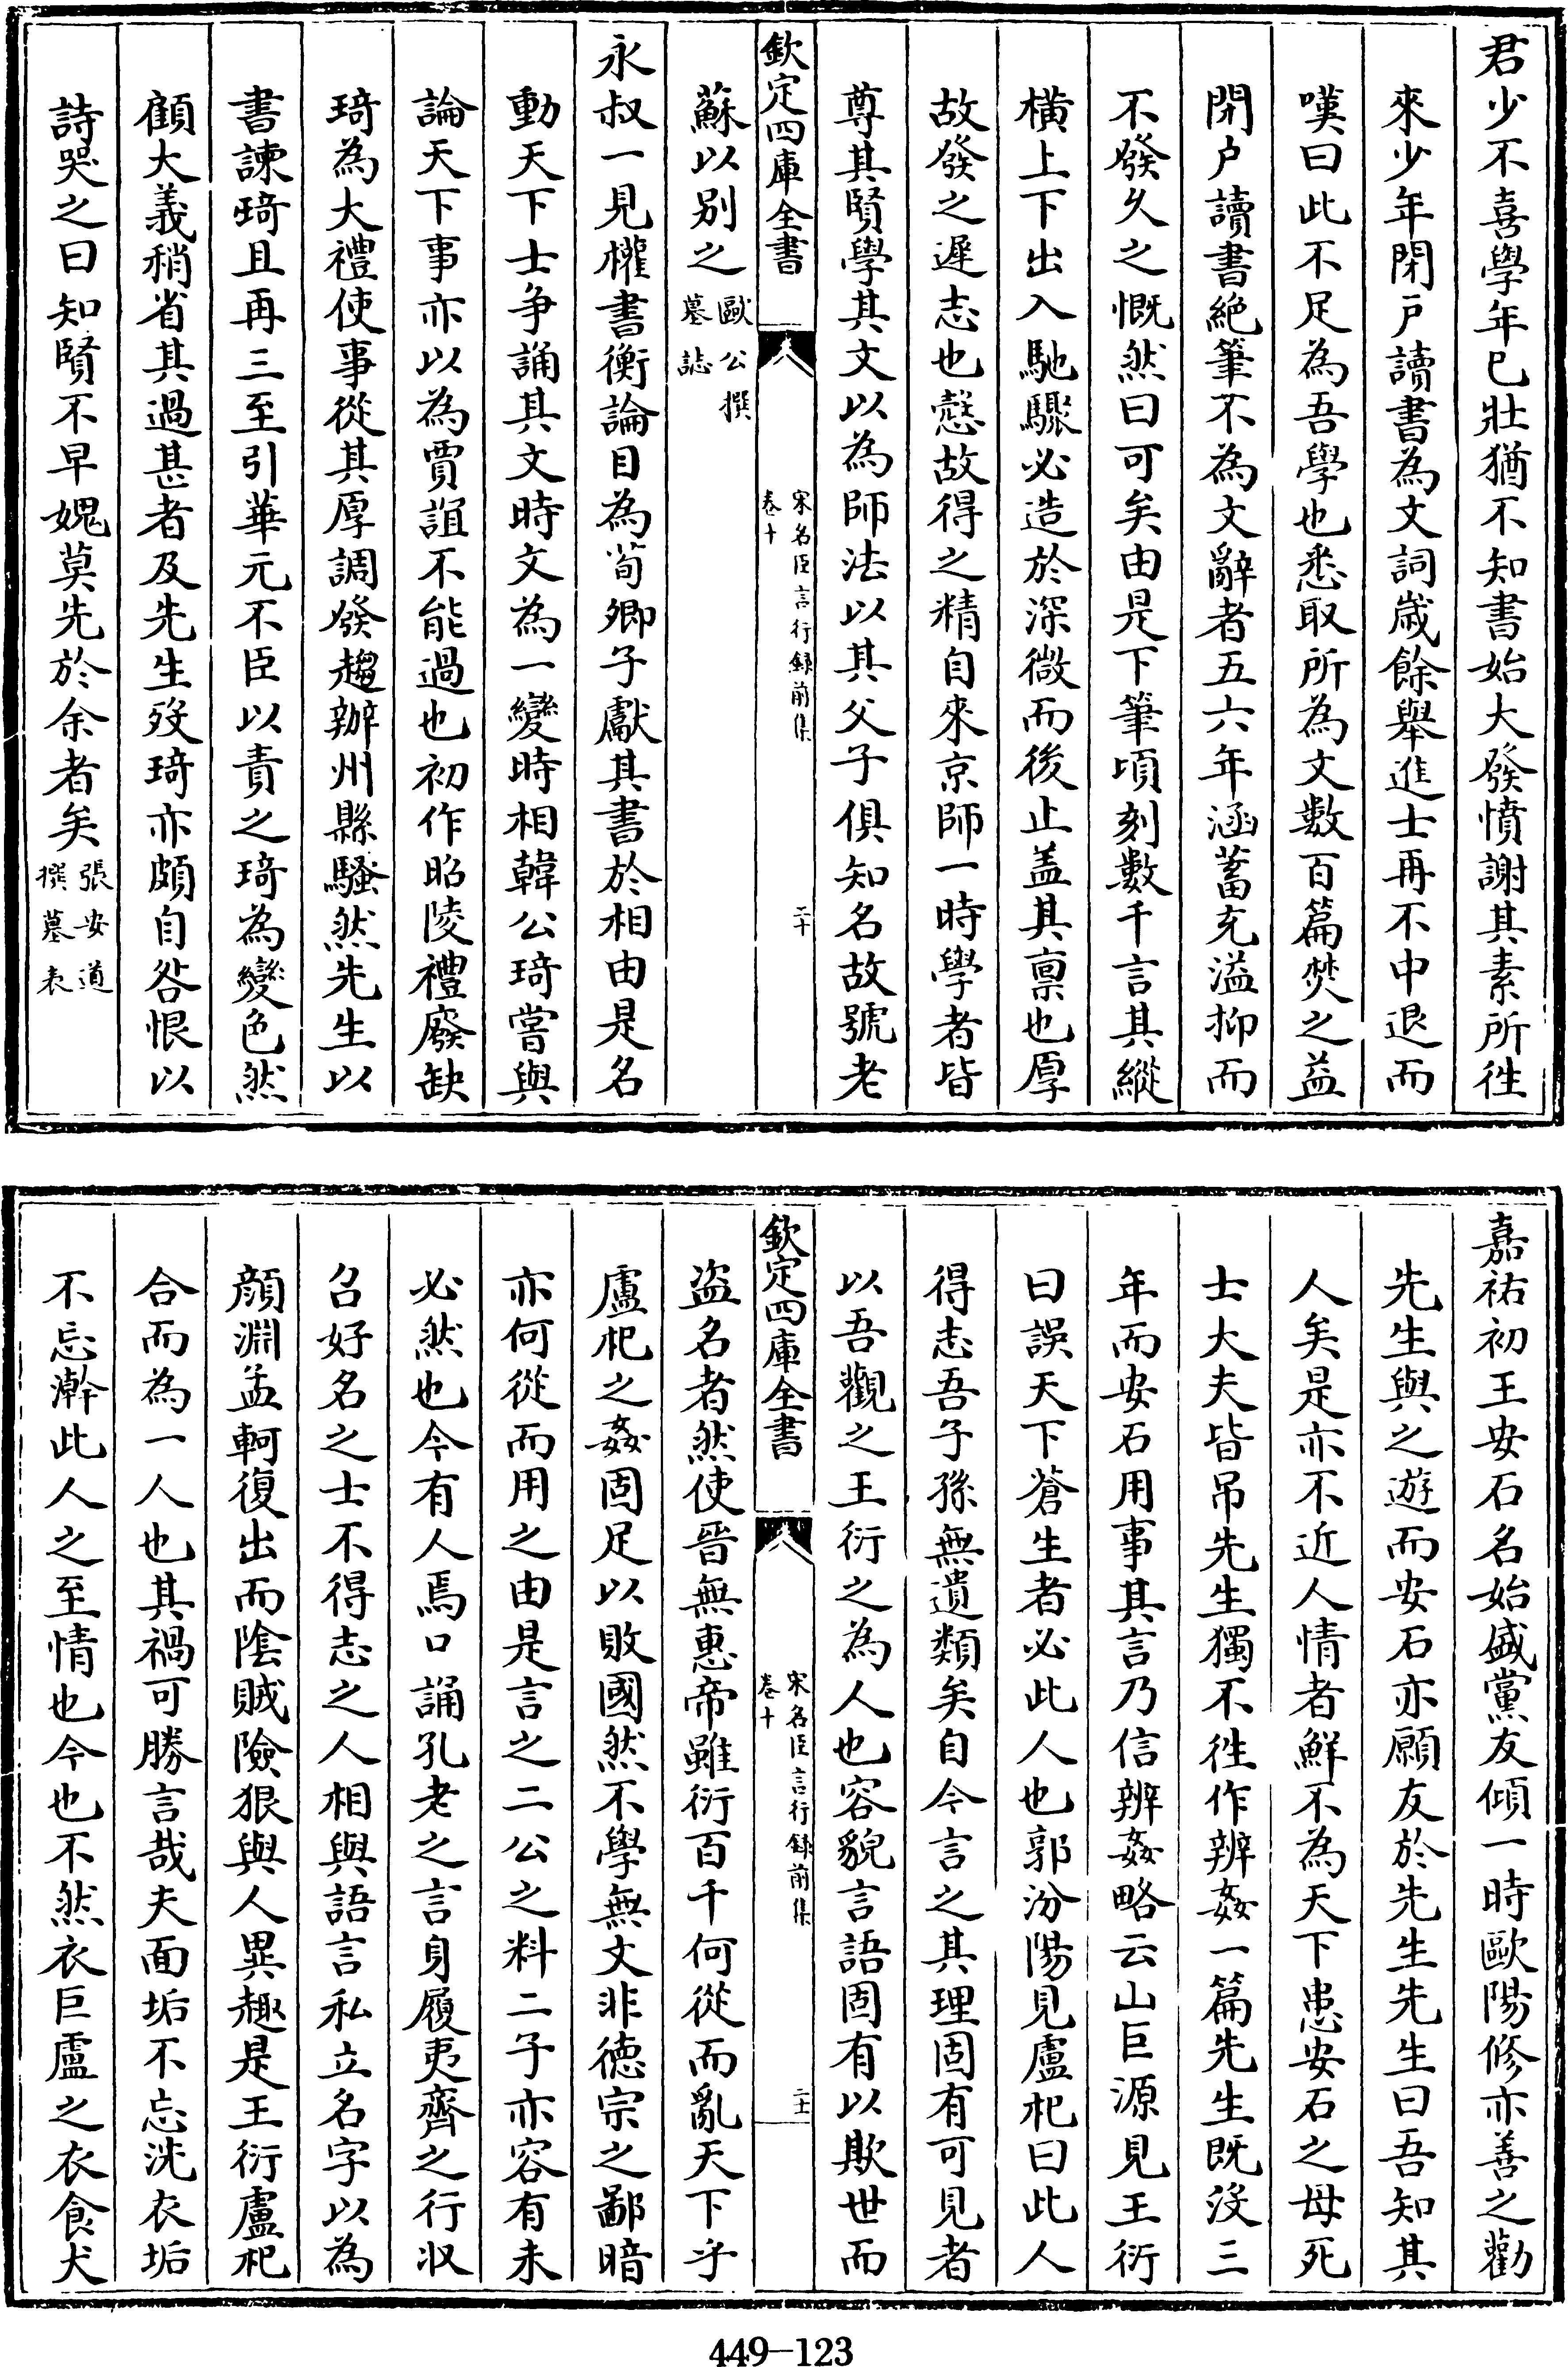 君少不喜學年已壯猶不知書始大發憤謝其素所徃
來少年閉戸讀書為文詞歲餘舉進士再不中退而
嘆曰此不足為吾學也悉取所為文數百篇焚之益
閉户讀書絶筆不為文辭者五六年涵蓄充溢抑而
不發久之慨然曰可矣由是下筆頃刻數千言其縱
橫上下出入馳驟必造於深微而後止盖其禀也厚
故發之遲志也慤故得之精自來京師一時學者皆
尊其賢學其文以為師法以其父子俱知名故號老
欽定四庫全書
宋名臣言行録前集
卷十
二十
蘇以别之
歐公撰
墓誌
永叔一見權書衡論目為荀卿子獻其書於相由是名
動天下士争誦其文時文為一變時相韓公琦嘗與
論天下事亦以為賈誼不能過也初作昭陵禮廢缺
琦為大禮使事從其厚調發趨辦州縣騷然先生以
書諫琦且再三至引華元不臣以責之琦為變色然
顧大義稍省其過甚者及先生殁琦亦頗自咎恨以
詩哭之曰知賢不早媿莫先於余者矣
張安道
撰墓表
嘉祐初王安石名始盛黨友傾一時歐陽修亦善之勸
先生與之遊而安石亦願友於先生先生曰吾知其
人矣是亦不近人情者鮮不為天下患安石之母死
士大夫皆吊先生獨不徃作辨姦一篇先生既没三
年而安石用事其言乃信辨姦略云山巨源見王衍
曰誤天下蒼生者必此人也郭汾陽見盧杞曰此人
得志吾子孫無遺類矣自今言之其理固有可見者
以吾觀之王衍之為人也容貌言語固有以欺世而
欽定四庫全書
宋名臣言行録前集
卷十
二十一
盗名者然使晉無惠帝雖衍百千何從而亂天下乎
盧杞之姦固足以敗國然不學無文非德宗之鄙暗
亦何從而用之由是言之二公之料二子亦容有未
必然也今有人焉口誦孔老之言身履夷齊之行収
召好名之士不得志之人相與語言私立名字以為
顔淵孟軻復出而陰賊險狠與人異趣是王衍盧杞
合而為一人也其禍可勝言哉夫面垢不忘洗衣垢
不忘澣此人之至情也今也不然衣巨盧之衣食犬
449-123